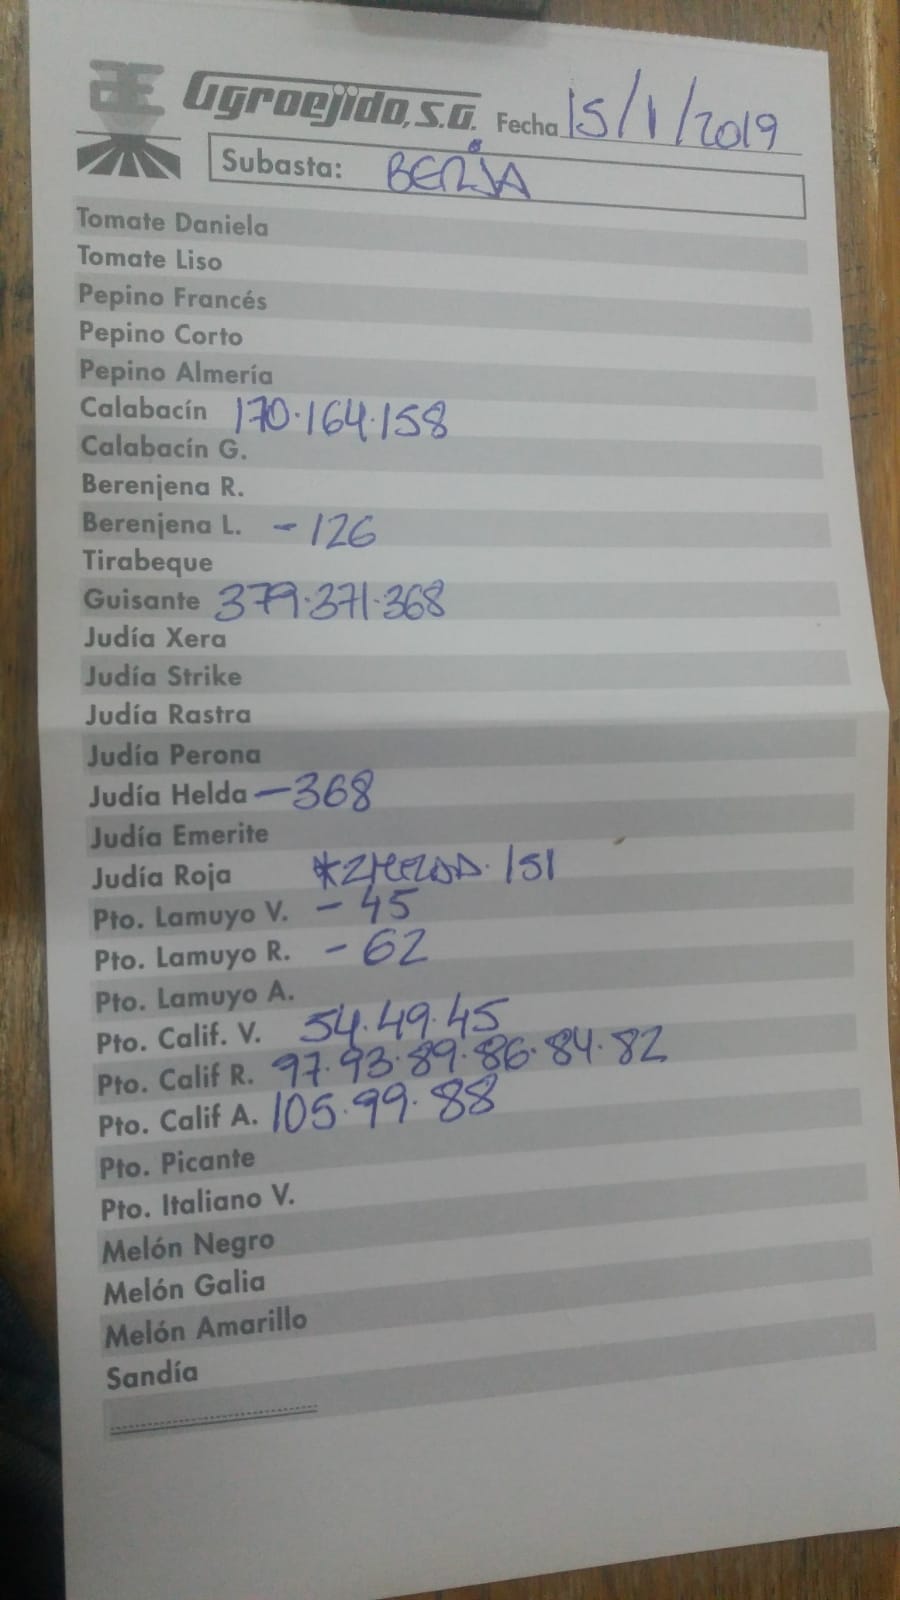 Agroejido, S.A. Fecha 15/1/2019
Subasta: BERJA
Tomate Daniela
Tomate Liso
Pepino Francés
Pepino Corto
Pepino Almería
Calabacín 170.164.158
Calabacín G.
Berenjena R.
Berenjena L. - 126
Tirabeque
Guisante 379.371.368
Judía Xera
Judía Strike
Judía Rastra
Judía Perona
Judía Helda - 368
Judía Emerite
Judía Roja 151
Pto. Lamuyo V. - 45
Pto. Lamuyo R. - 62
Pto. Lamuyo A.
Pto. Calif. V. 54.49.45
Pto. Calif R. 97.93.89.86.84.82
Pto. Calif A. 105.99.88
Pto. Picante
Pto. Italiano V.
Melón Negro
Melón Galia
Melón Amarillo
Sandía